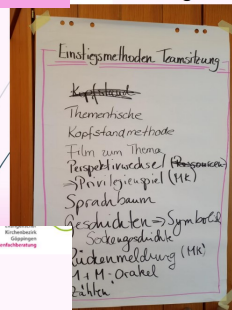 Einstiegsmethoden Teamsitzung
Kopfstand
Thementische
Kopfstandmethode
Film zum Thema
Perspektivwechsel (Ressourcen)
→ Privilegienspiel (MK)
Sprachbaum
Geschichten ⇒ Symbole
Sockengeschichte
Rückenmeldung (MK)
M+M-Orakel
Zählen
Kirchenbezirk
Göppingen
enfachberatung